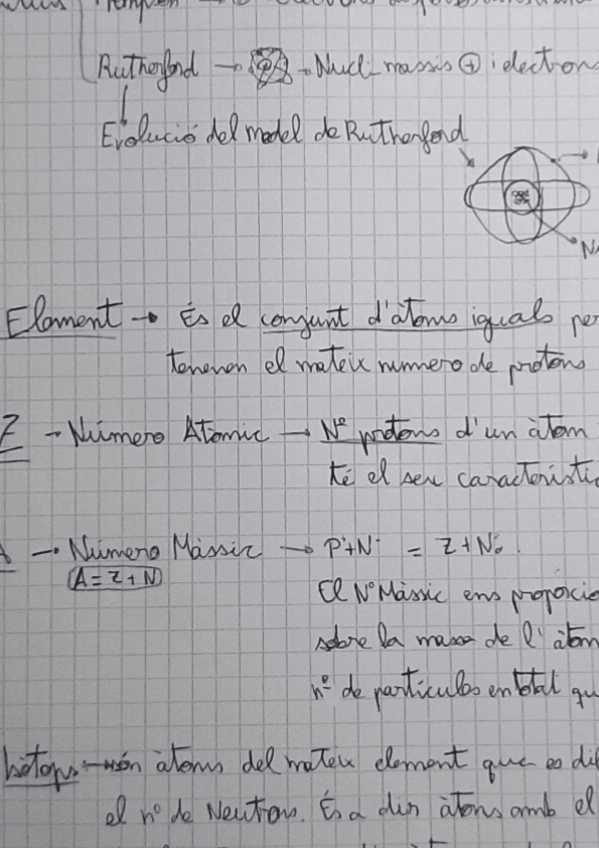 Rutherford → Nucli massis ⊕ i electron
Evolució del model de Rutherford
Element → És el conjunt d'àtoms iguals per
tenenen el mateix numero de protons
Z → Número Atòmic → Nº protons d'un àtom
té el seu característi
→ Número Màssic → P⁺+Nº = Z + Nº.
A = Z + N
El Nº Màssic ens proporcio
sobre la massa de l'àtom
nº de particules en total qu
Isòtops → són àtoms del mateix element que es dif
el nº de Neutrons. És a dir àtoms amb el